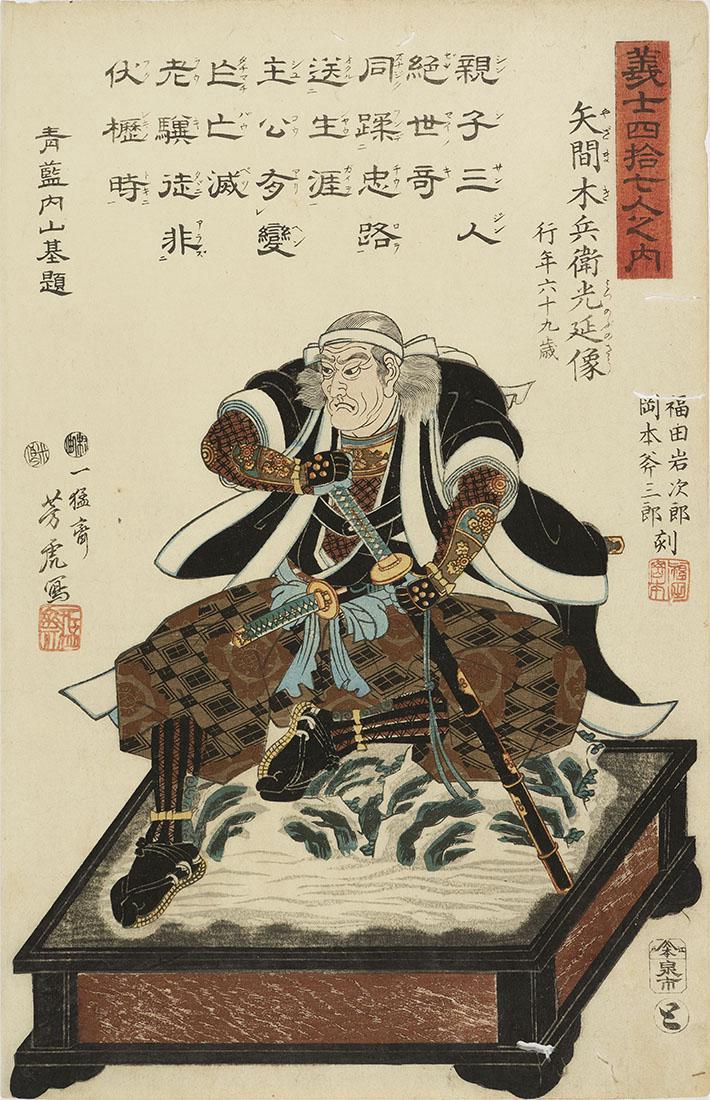 義士四拾七人之内
矢間木兵衛光延像
行年六十九歳
福田岩次郎
岡本斧三郎刻
親子三人
絶世奇
同蹂忠路
送生涯
主公有變
乍亡滅
老驥徒非
伏櫪時
青藍内山基題
一猛齋
芳虎寫
泉市
と